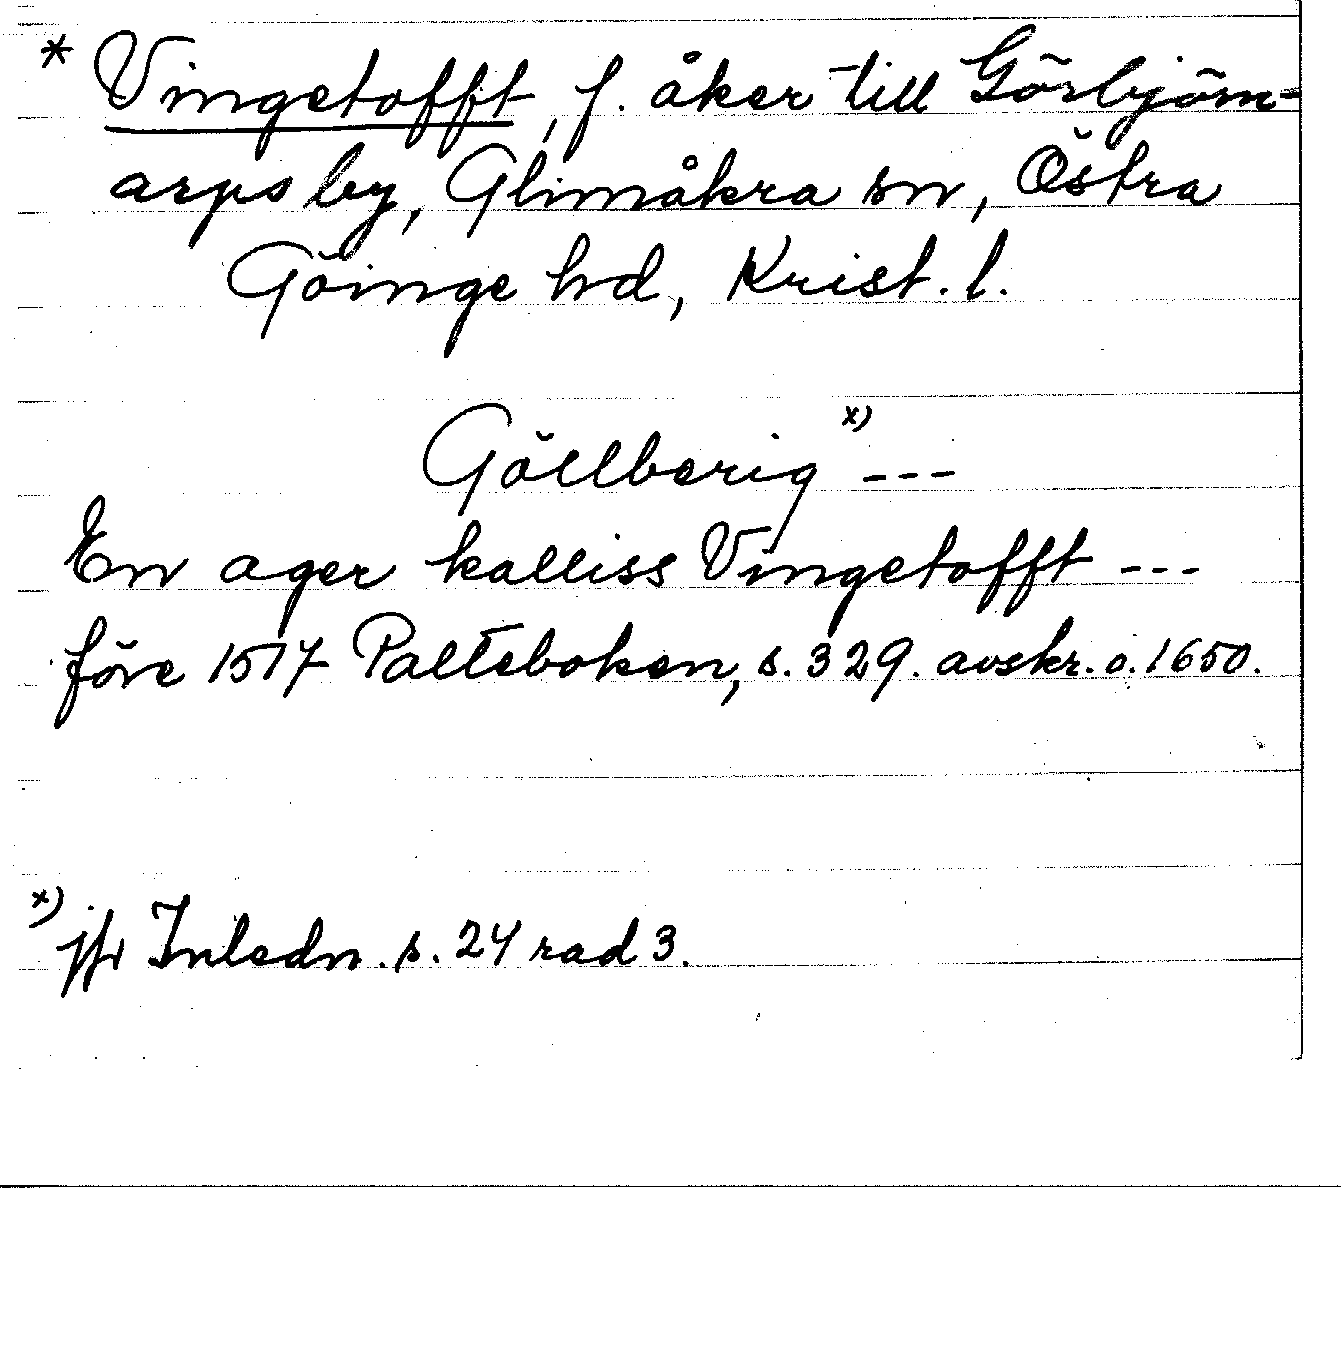 * Vingetofft, f. åker till Görbjörn-
arps by, Glimåkra sn, Östra
Göinge hd, Krist. l.
Göllberig x) ---
En ager kalliss Vingetofft ---
före 1517 Palteboken, s. 329. avskr. o. 1650.
x) jfr Inledn. s. 24 rad 3.